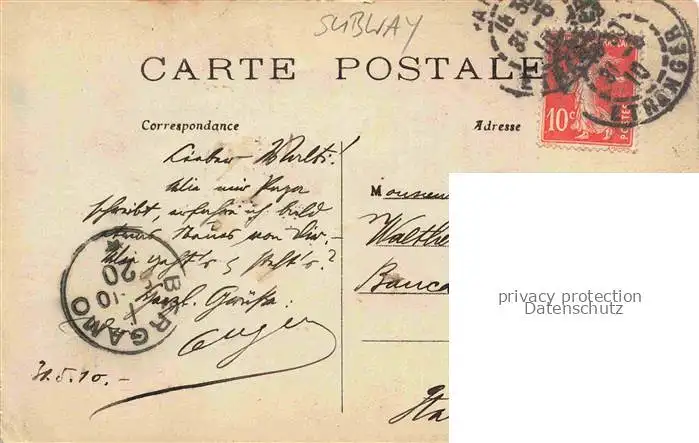 SUBWAY
CARTE POSTALE
Correspondance
Adresse
Lieber Walti!
Wie mir Puza
schreibt, erfahre ich bald
etwas Neues von Dir. -
Wie geht's & steht's?
Herzl. Grüsse:
Eugen
31.5.10. -
BERGAMO
20
10
10c
POSTES
ETRANGER
Monsieu
Walthe
Banca
Ita
privacy protection
Datenschutz